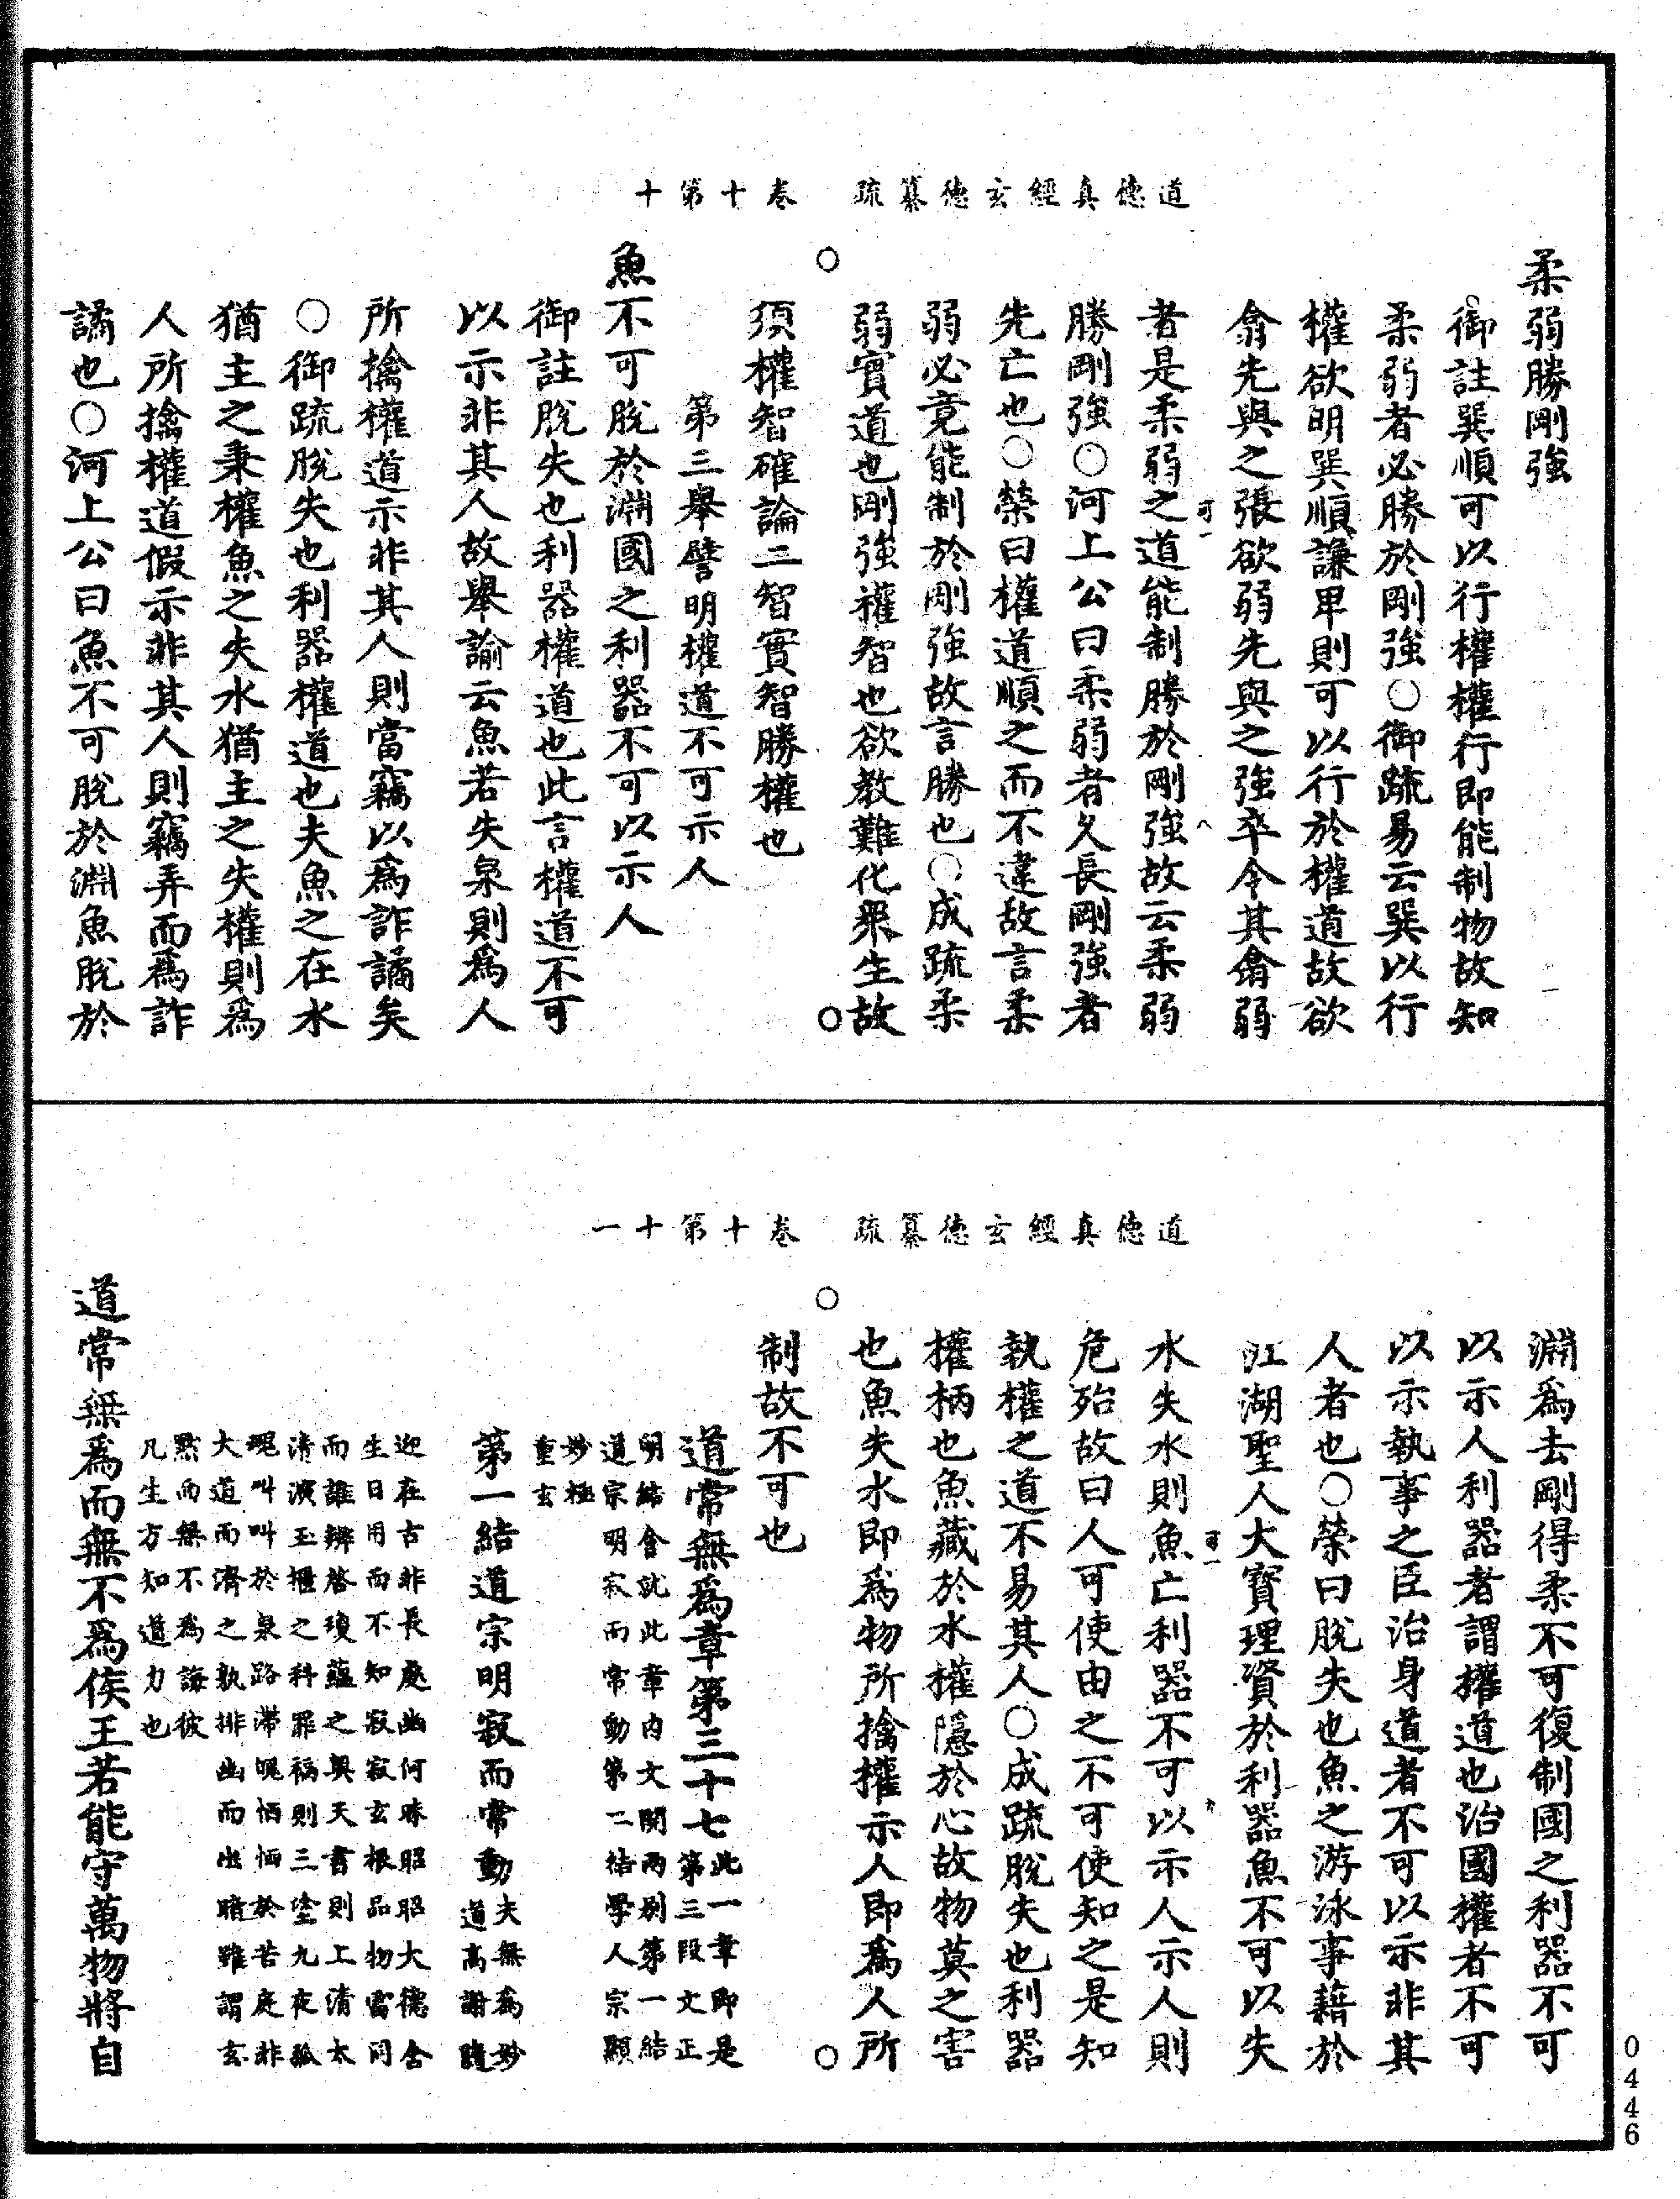 道德真經玄德纂疏　卷十第十
柔弱勝剛強
御註巽順可以行權權行即能制物故知
柔弱者必勝於剛強○御疏易云巽以行
權欲明巽順謙卑則可以行於權道故欲
翕先與之張欲弱先與之強卒令其翕弱
可一
者是柔弱之道能制勝於剛強故云柔弱
勝剛強○河上公曰柔弱者久長剛強者
先亡也○榮曰權道順之而不違故言柔
弱必竟能制於剛強故言勝也○成疏柔
弱實道也剛強權智也欲教難化眾生故
○　○
須權智確論二智實智勝權也
第三舉譬明權道不可示人
魚不可脫於淵國之利器不可以示人
御註脫失也利器權道也此言權道不可
以示非其人故舉諭云魚若失泉則為人
所擒權道示非其人則當竊以為詐譎矣
○御疏脫失也利器權道也夫魚之在水
猶主之秉權魚之失水猶主之失權則為
人所擒權道假示非其人則竊弄而為詐
譎也○河上公曰魚不可脫於淵魚脫於
道德真經玄德纂疏　卷十第十一
淵為去剛得柔不可復制國之利器不可
以示人利器者謂權道也治國權者不可
以示執事之臣治身道者不可以示非其
人者也○榮曰脫失也魚之游泳事藉於
江湖聖人大寶理資於利器魚不可以失
可一
水失水則魚亡利器不可以示人示人則
危殆故曰人可使由之不可使知之是知
執權之道不易其人○成疏脫失也利器
權柄也魚藏於水權隱於心故物莫之害
也魚失水即為物所擒權示人即為人所
○　○
制故不可也
道常無為章第三十七此一章即是第三段文正
明結會就此章內文開兩別第一結
道宗明寂而常動第二結學人宗顯
妙極
重玄
第一結道宗明寂而常動夫無為妙道高謝
迎在古非長處幽何昧昭昭大德含
生日用而不知寂寂玄根品物當同
而誰辨啓瓊蘊之奧天書則上清太
清演玉櫃之科罪福則三塗九夜孤
魂叫叫於泉路滯魄恓恓於苦庭非
大道而濟之孰排幽而出暗雖謂玄
默而無不為誨彼
凡生方知道力也
道常無為而無不為侯王若能守萬物將自
0446